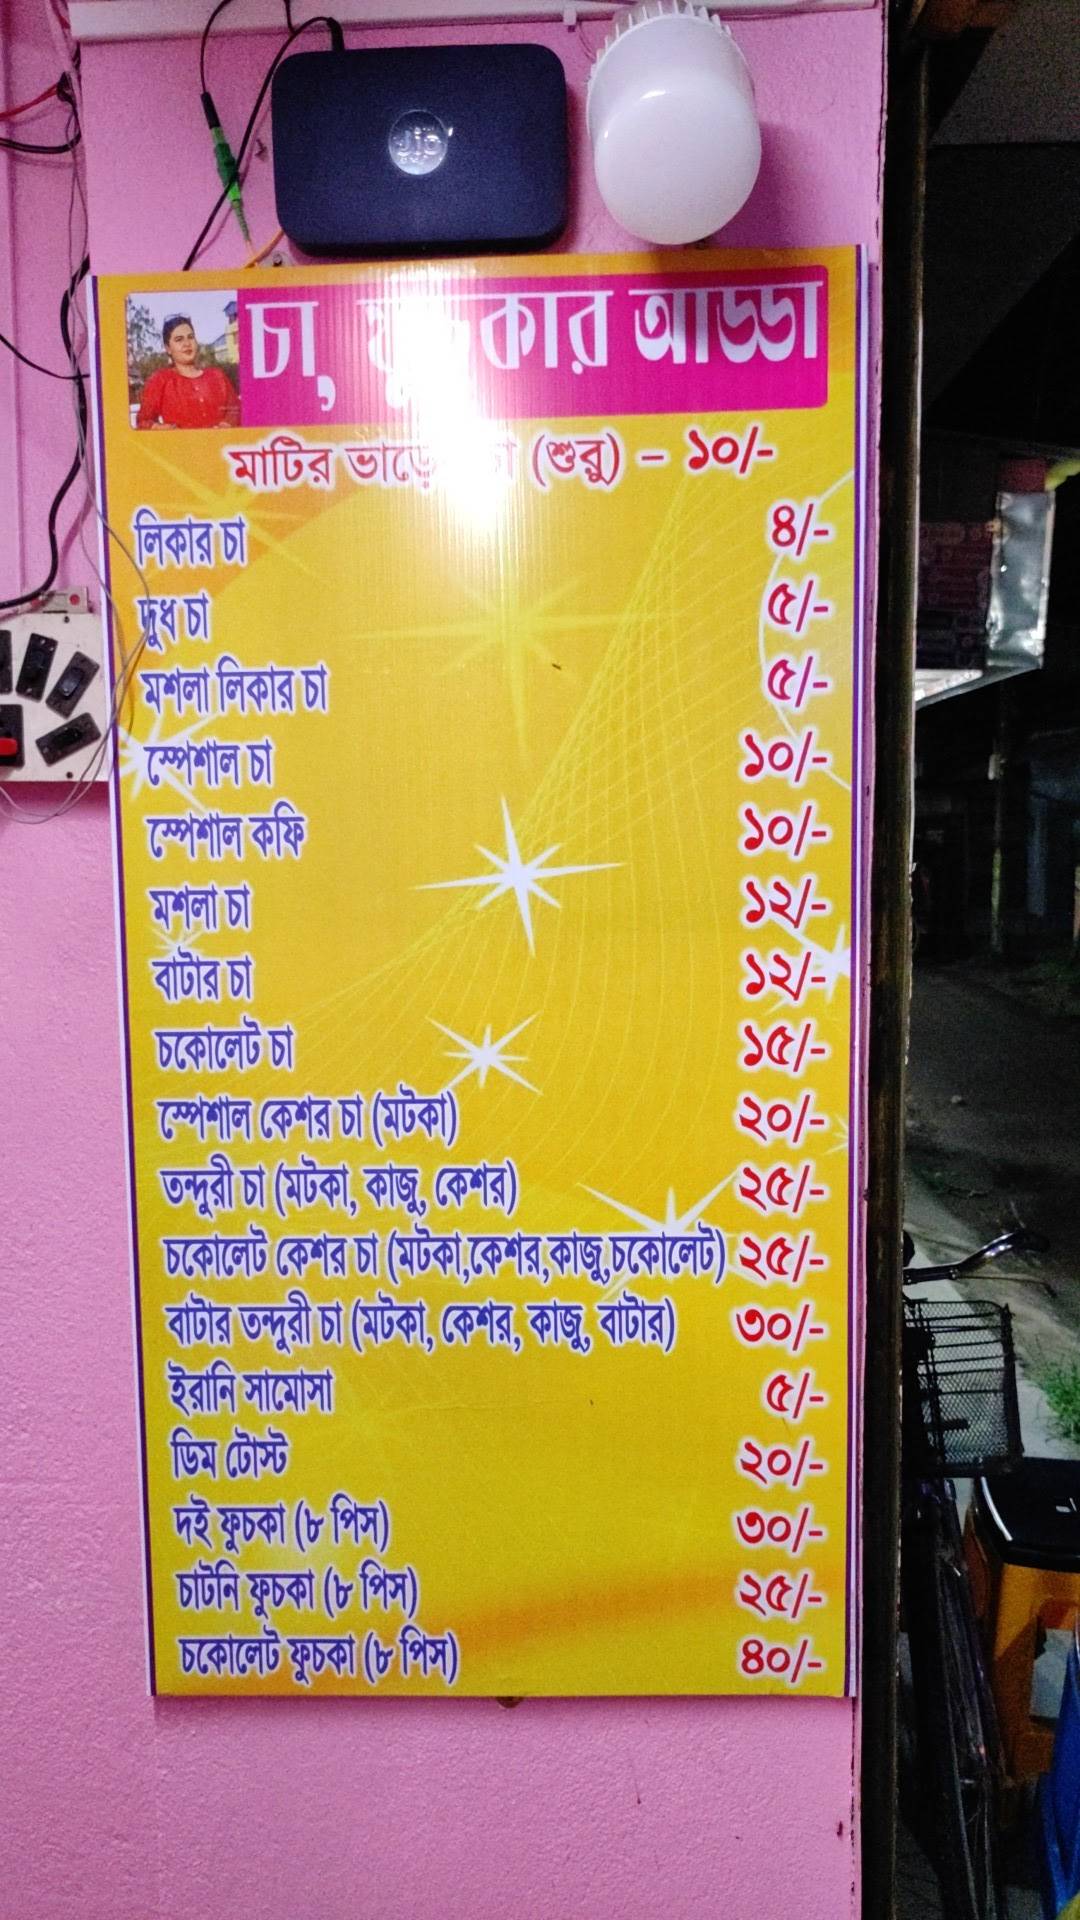 Jio
চা, ফুচকার আড্ডা
মাটির ভাড়ে চা (শুরু) – ১০/-
লিকার চা ৪/-
দুধ চা ৫/-
মশলা লিকার চা ৫/-
স্পেশাল চা ১০/-
স্পেশাল কফি ১০/-
মশলা চা ১২/-
বাটার চা ১২/-
চকোলেট চা ১৫/-
স্পেশাল কেশর চা (মটকা) ২০/-
তন্দুরী চা (মটকা, কাজু, কেশর) ২৫/-
চকোলেট কেশর চা (মটকা,কেশর,কাজু,চকোলেট) ২৫/-
বাটার তন্দুরী চা (মটকা, কেশর, কাজু, বাটার) ৩০/-
ইরানি সামোসা ৫/-
ডিম টোস্ট ২০/-
দই ফুচকা (৮ পিস) ৩০/-
চাটনি ফুচকা (৮ পিস) ২৫/-
চকোলেট ফুচকা (৮ পিস) ৪০/-